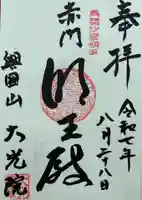 奉拝
令和七年
八月二十八日
赤門
明王殿
興国山
大光院